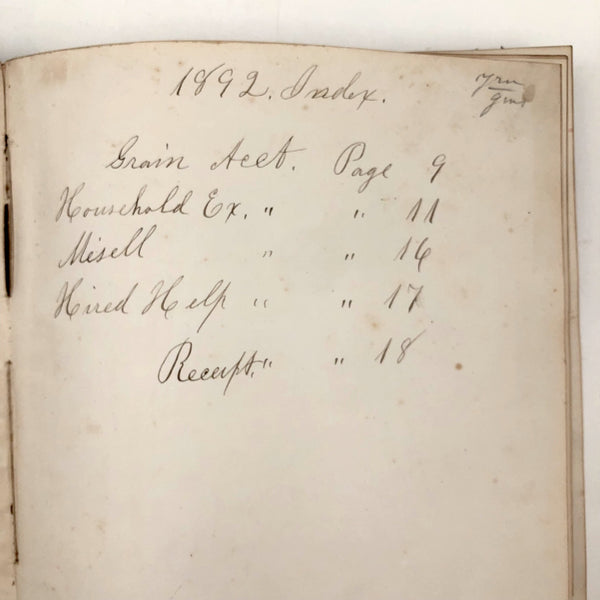 1892. Index.
Grain Acct. Page 9
Household Ex. " " 11
Misell " " 16
Hired Help " " 17
Receipt. " " 18